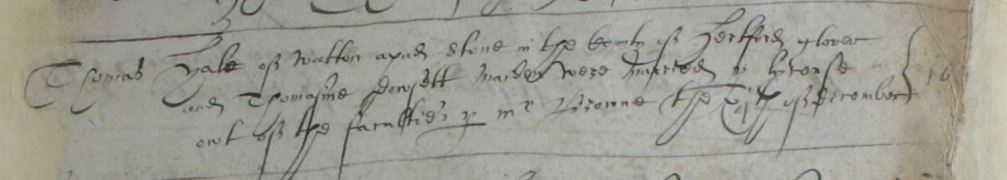 Thomas Hale of Watton apud Stone in the County of Hertford glover
and Thomasine Dowsett maiden were married p lycense
owt of the faculties p mr Browne the of December 16